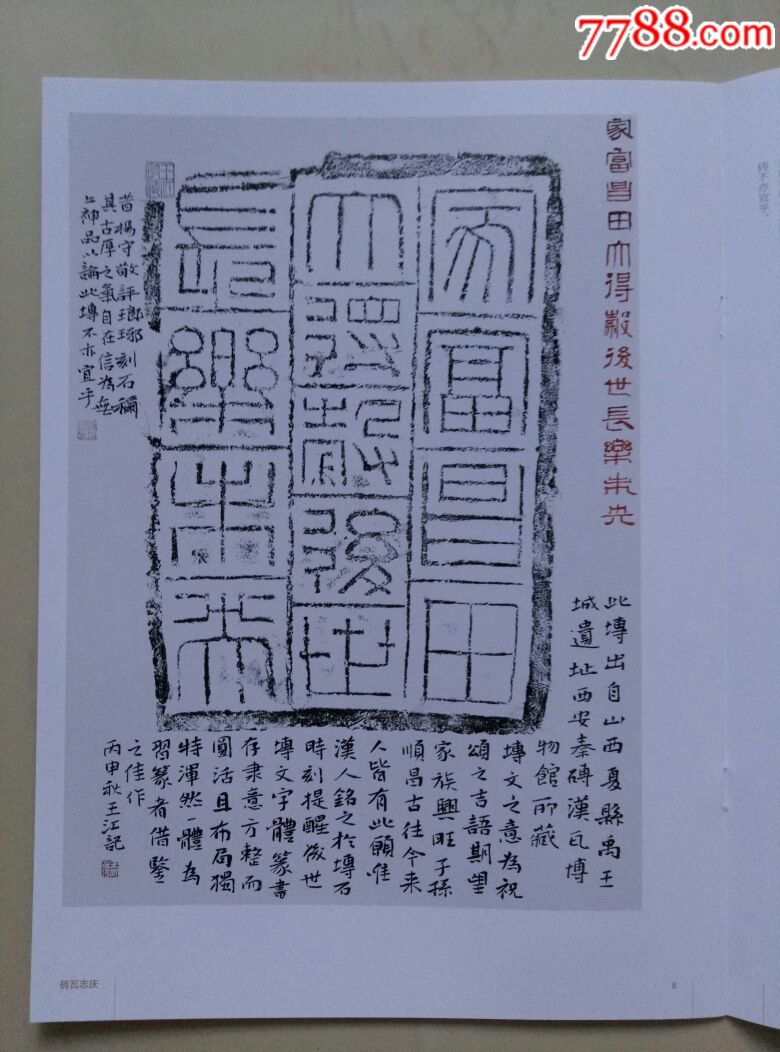 7788.com
家富昌田大得穀後世長樂未央
家富昌田
大得穀後世
長樂未央
此塼出自山西夏縣禹王
城遺址西安秦磚漢瓦博
物館所藏
塼文之意為祝
頌之吉語期望
家族興旺子孫
順昌古往今來
人皆有此願惟
漢人銘之於塼石
時刻提醒後世
塼文字體篆書
存隶意方整而
圓活且布局獨
特渾然一體為
習篆者借鑒
之佳作
丙申秋王江記
昔楊守敬評瑯琊刻石稱
其古厚之氣自在信為無
上神品以論此塼不亦宜乎
砖不亦宜乎。
砖瓦志庆
8